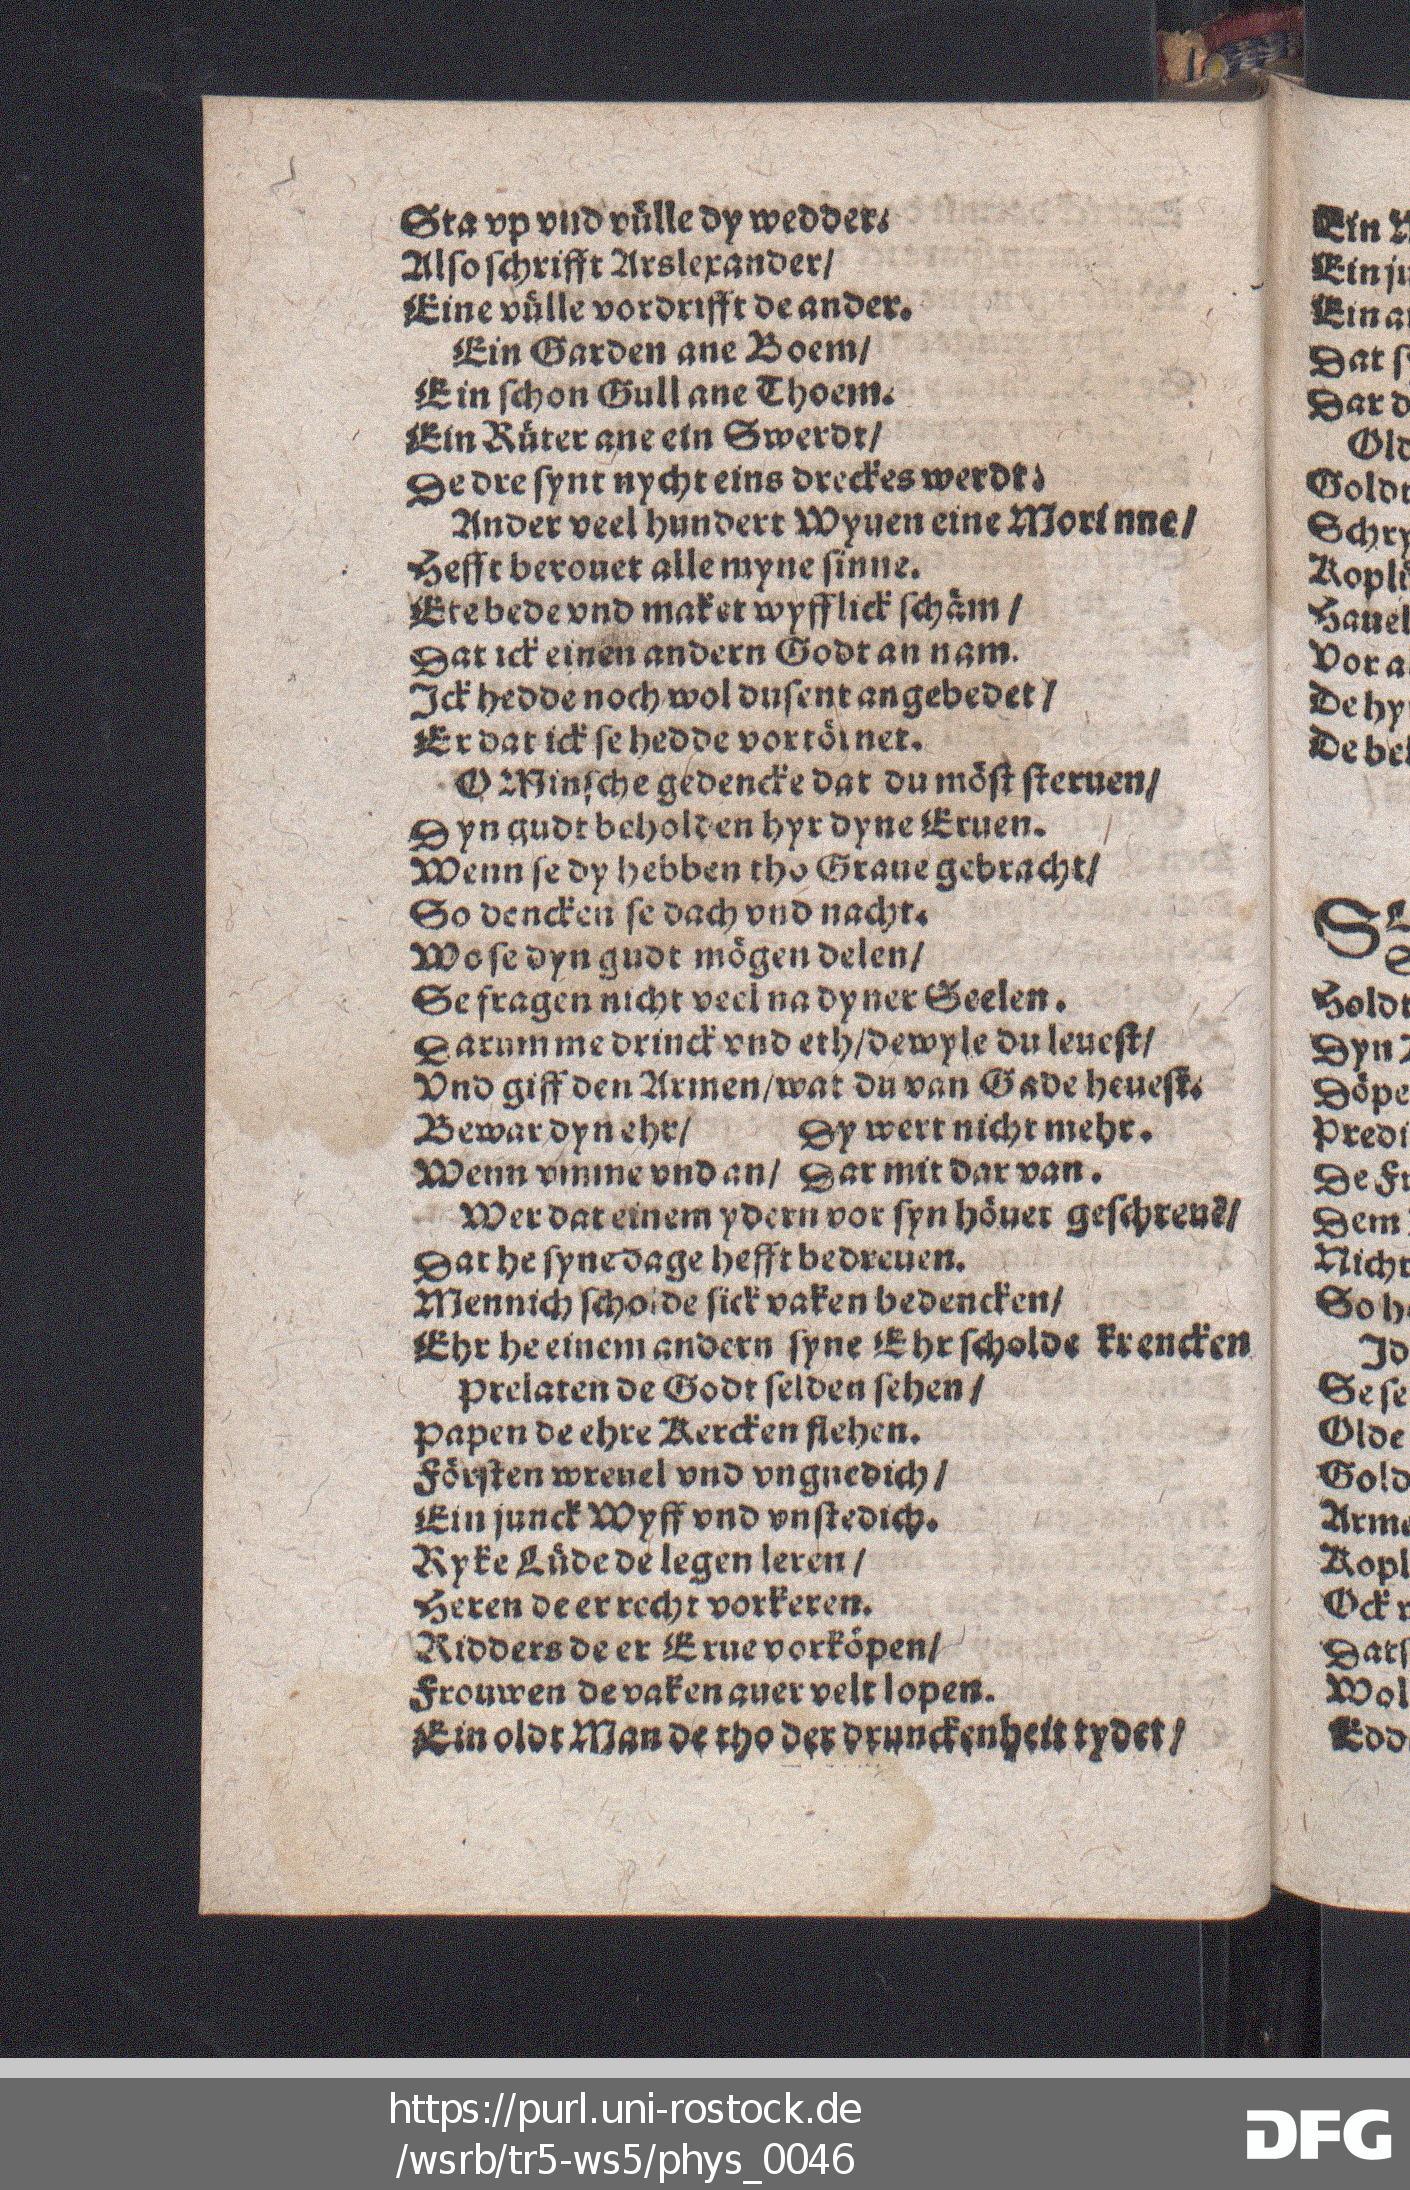 Sta vp vnd vülle dy wedder.
Also schrifft Arslexander/
Eine vülle vordrifft de ander.
Ein Garden ane Boem/
Ein schon Gull ane Thoem.
Ein Rüter ane ein Swerdt/
De dre synt nycht eins dreckes werdt.
Ander veel hundert Wyuen eine Morinne/
Hefft berouet alle myne sinne.
Ere bede vnd maket wyfflick schäm/
Dat ick einen andern Godt an nam.
Ick hedde noch wol dusent angebedet/
Er dat ick se hedde vortörnet.
O Minsche gedencke dat du möst steruen/
Dyn gudt beholden hyr dyne Eruen.
Wenn se dy hebben tho Graue gebracht/
So dencken se dach vnd nacht.
Wo se dyn gudt mögen delen/
Se fragen nicht veel na dyner Seelen.
Darumme drinck vnd eth/dewyle du leuest/
Vnd giff den Armen/wat du van Gade heuest.
Bewar dyn ehr/ Dy wert nicht mehr.
Wenn vmme vnd an/ Dar mit dar van.
Wer dat einem ydern vor syn höuet geschreuē/
Dat he syne dage hefft bedreuen.
Mennich scholde sick vaken bedencken/
Ehr he einem andern syne Ehr scholde krencken
Prelaten de Godt selden sehen/
Papen de ehre Kercken flehen.
Försten wreuel vnd vngnedich/
Ein junck Wyff vnd vnstedich.
Ryke Lüde de legen leren/
Heren de er recht vorkeren.
Ridders de er Erue vorköpen/
Frouwen de vaken auer velt lopen.
Ein oldt Man de tho der drunckenheit tydet/
Ein
Ein ju
Ein
Dat
Dar
Old
Goldt
Schry
Koplü
Hauel
Vor
De hy
De be
Holdt
Dyn
Döpe
Predi
De Fr
Dem
Nicht
So
Id
Se se
Olde
Gold
Arme
Kopl
Ock
Dat
Wol
Edd
https://purl.uni-rostock.de
/wsrb/tr5-ws5/phys_0046
DFG